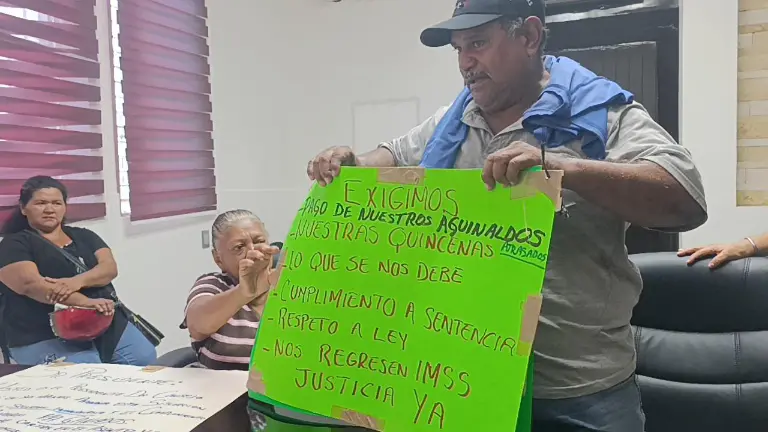 EXIGIMOS
-PAGO DE NUESTROS AGUINALDOS
ATRASADOS
-NUESTRAS QUINCENAS
-LO QUE SE NOS DEBE
-CUMPLIMIENTO A SENTENCIA
-RESPETO A LEY
-NOS REGRESEN IMSS
JUSTICIA YA